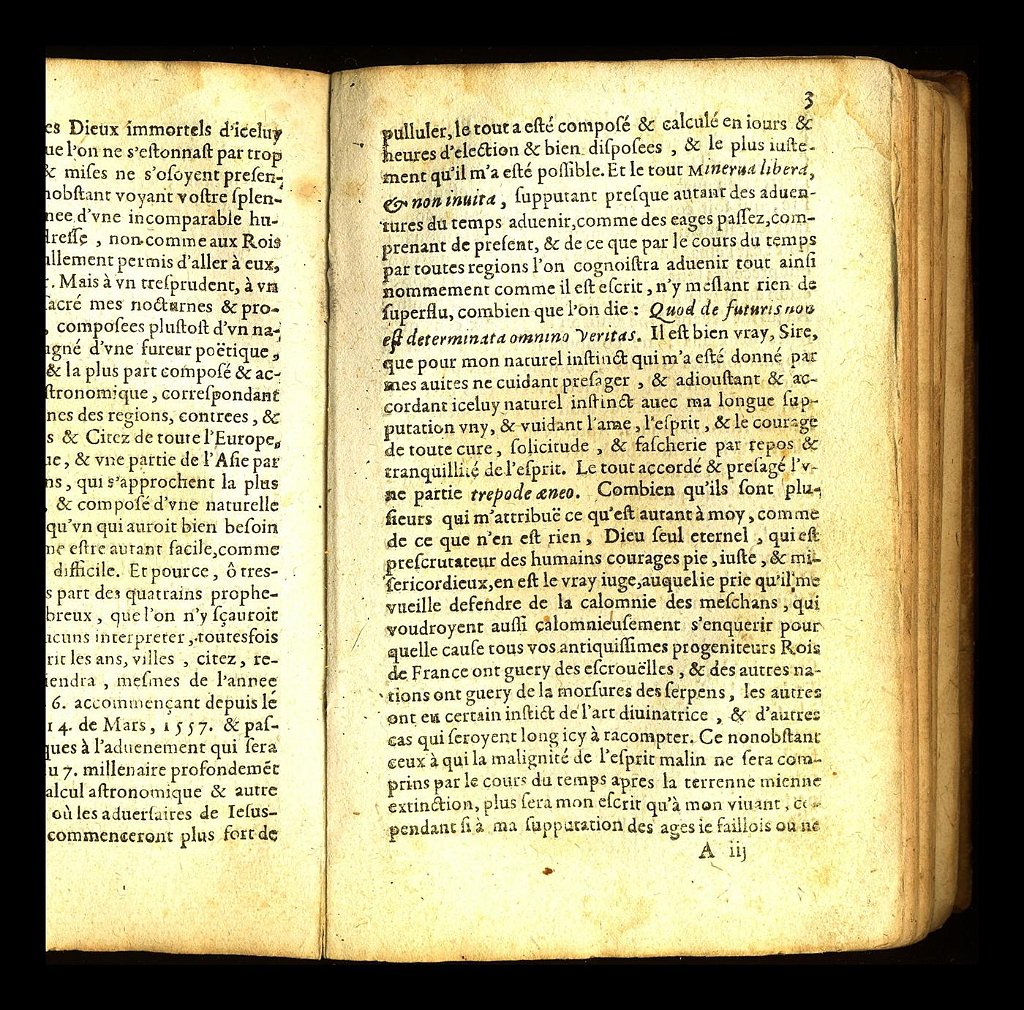 es Dieux immortels d'iceluy
ue l'on ne s'eſtonnaſt par trop
& mises ne s'oſoyent preſen-
nobſtant voyant voſtre ſplen-
nee d'vne incomparable hu-
dreſſe, non comme aux Rois
ullement permis d'aller à eux,
. Mais à vn treſprudent, à vn
ſacré mes nocturnes & pro-
, compoſees pluſtoſt d'vn na-
gné d'vne fureur poëtique,
& la plus part compoſé & ac-
ſtronomique, correſpondant
nes des regions, contrees, &
s & Citez de toute l'Europe,
ue, & vne partie de l'Aſie par
ns, qui s'approchent la plus
, & compoſé d'vne naturelle
qu'vn qui auroit bien beſoin
ne eſtre autant facile, comme
difficile. Et pource, ô tres-
s part des quatrains prophe-
breux, que l'on n'y ſçauroit
ucuns interpreter, toutesfois
rit les ans, villes, citez, re-
iendra, meſmes de l'annee
6. accommençant depuis le
14. de Mars, 1557. & paſ-
ques à l'aduenement qui ſera
u 7. millenaire profondemẽt
alcul aſtronomique & autre
où les aduerſaires de Ieſus-
commenceront plus fort de
3
pulluler, le tout a eſté compoſé & calculé en iours &
heures d'election & bien diſpoſees, & le plus iuſte-
ment qu'il m'a eſté poſſible. Et le tout Minerua libera,
& non inuita, ſupputant preſque autant des aduen-
tures du temps aduenir, comme des eages paſſez, com-
prenant de preſent, & de ce que par le cours du temps
par toutes regions l'on cognoiſtra aduenir tout ainſi
nommement comme il eſt eſcrit, n'y meſlant rien de
ſuperflu, combien que l'on die: Quod de futuris non
eſt determinata omnino veritas. Il eſt bien vray, Sire,
que pour mon naturel inſtinct qui m'a eſté donné par
mes auites ne cuidant preſager, & adiouſtant & ac-
cordant iceluy naturel inſtinct auec ma longue ſup-
putation vny, & vuidant l'ame, l'eſprit, & le courage
de toute cure, ſolicitude, & faſcherie par repos &
tranquillité de l'eſprit. Le tout accordé & preſagé l'v-
ne partie trepode æneo. Combien qu'ils ſont plu-
ſieurs qui m'attribuë ce qu'eſt autant à moy, comme
de ce que n'en eſt rien, Dieu ſeul eternel, qui eſt
preſcrutateur des humains courages pie, iuſte, & mi-
ſericordieux, en eſt le vray iuge, auquel ie prie qu'il me
vueille defendre de la calomnie des meſchans, qui
voudroyent auſſi calomnieuſement s'enquerir pour
quelle cauſe tous vos antiquiſſimes progeniteurs Rois
de France ont guery des eſcrouëlles, & des autres na-
tions ont guery de la morſures des ſerpens, les autres
ont eu certain inſtict de l'art diuinatrice, & d'autres
cas qui ſeroyent long icy à racompter. Ce nonobſtant
ceux à qui la malignité de l'eſprit malin ne ſera com-
prins par le cours du temps apres la terrenne mienne
extinction, plus ſera mon eſcrit qu'à mon viuant, ce-
pendant ſi à ma ſupputation des ages ie faillois ou ne
A iij